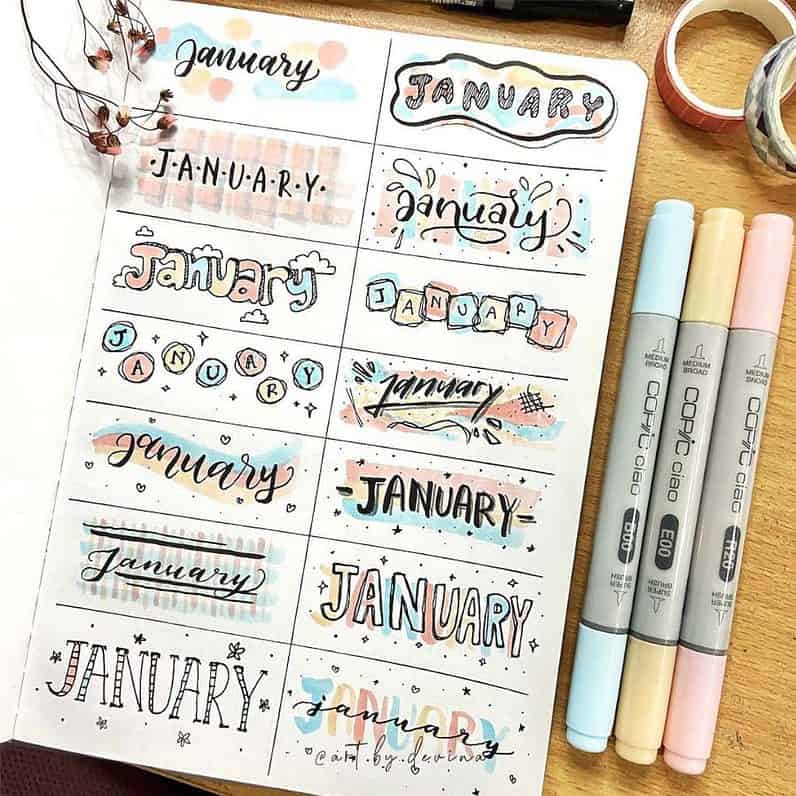 January
JANUARY
·J·A·N·U·A·R·Y·
january
January
JANUARY
JANUARY
january
january
-JANUARY-
January
JANUARY
JANUARY
JANUARY
january
@art.by.devina
MEDIUM BROAD
COPIC ciao
B00
SUPER BRUSH
MEDIUM BROAD
COPIC ciao
E00
SUPER BRUSH
MEDIUM BROAD
COPIC ciao
R20
SUPER BRUSH